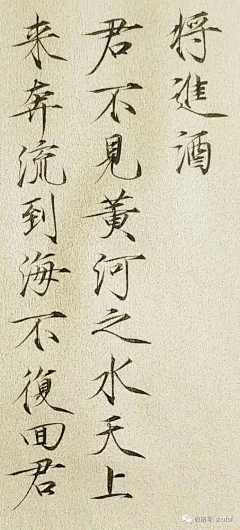 将進酒
君不見黄河之水天上
来奔流到海不復回君